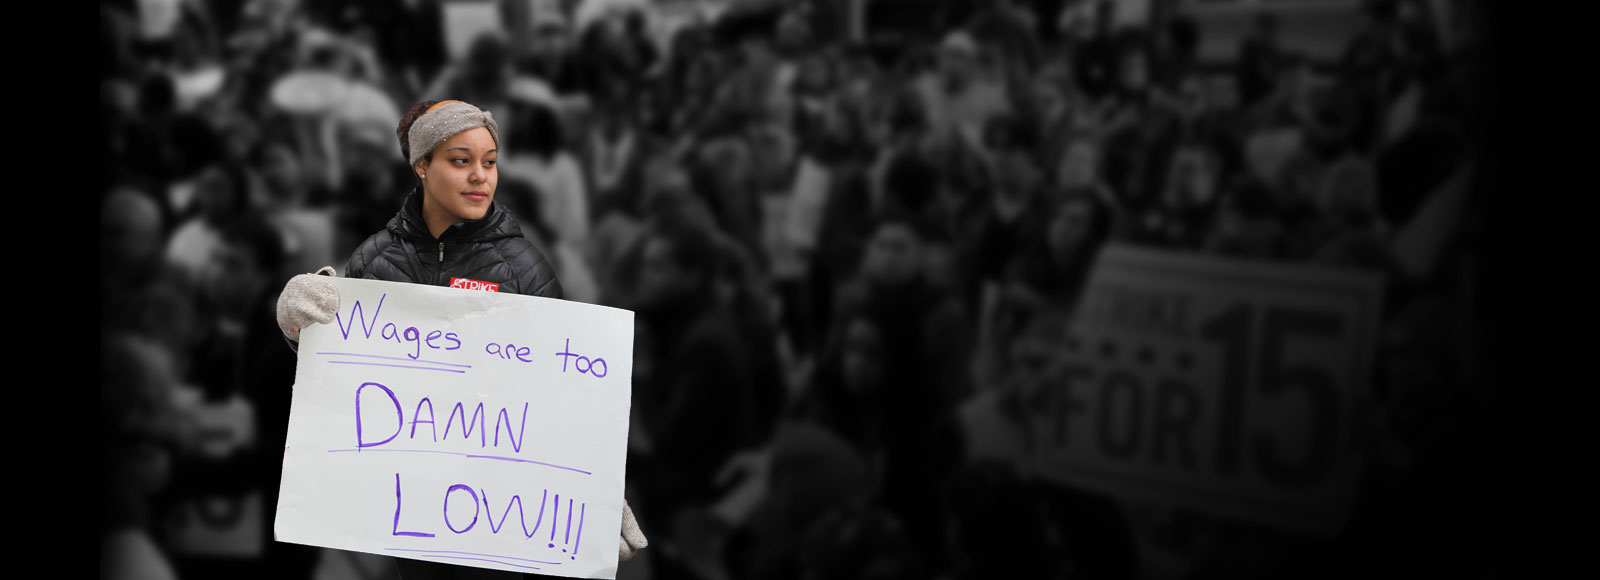 STRIKE
Wages are too
DAMN
LOW!!!
STRIKE
FOR 15